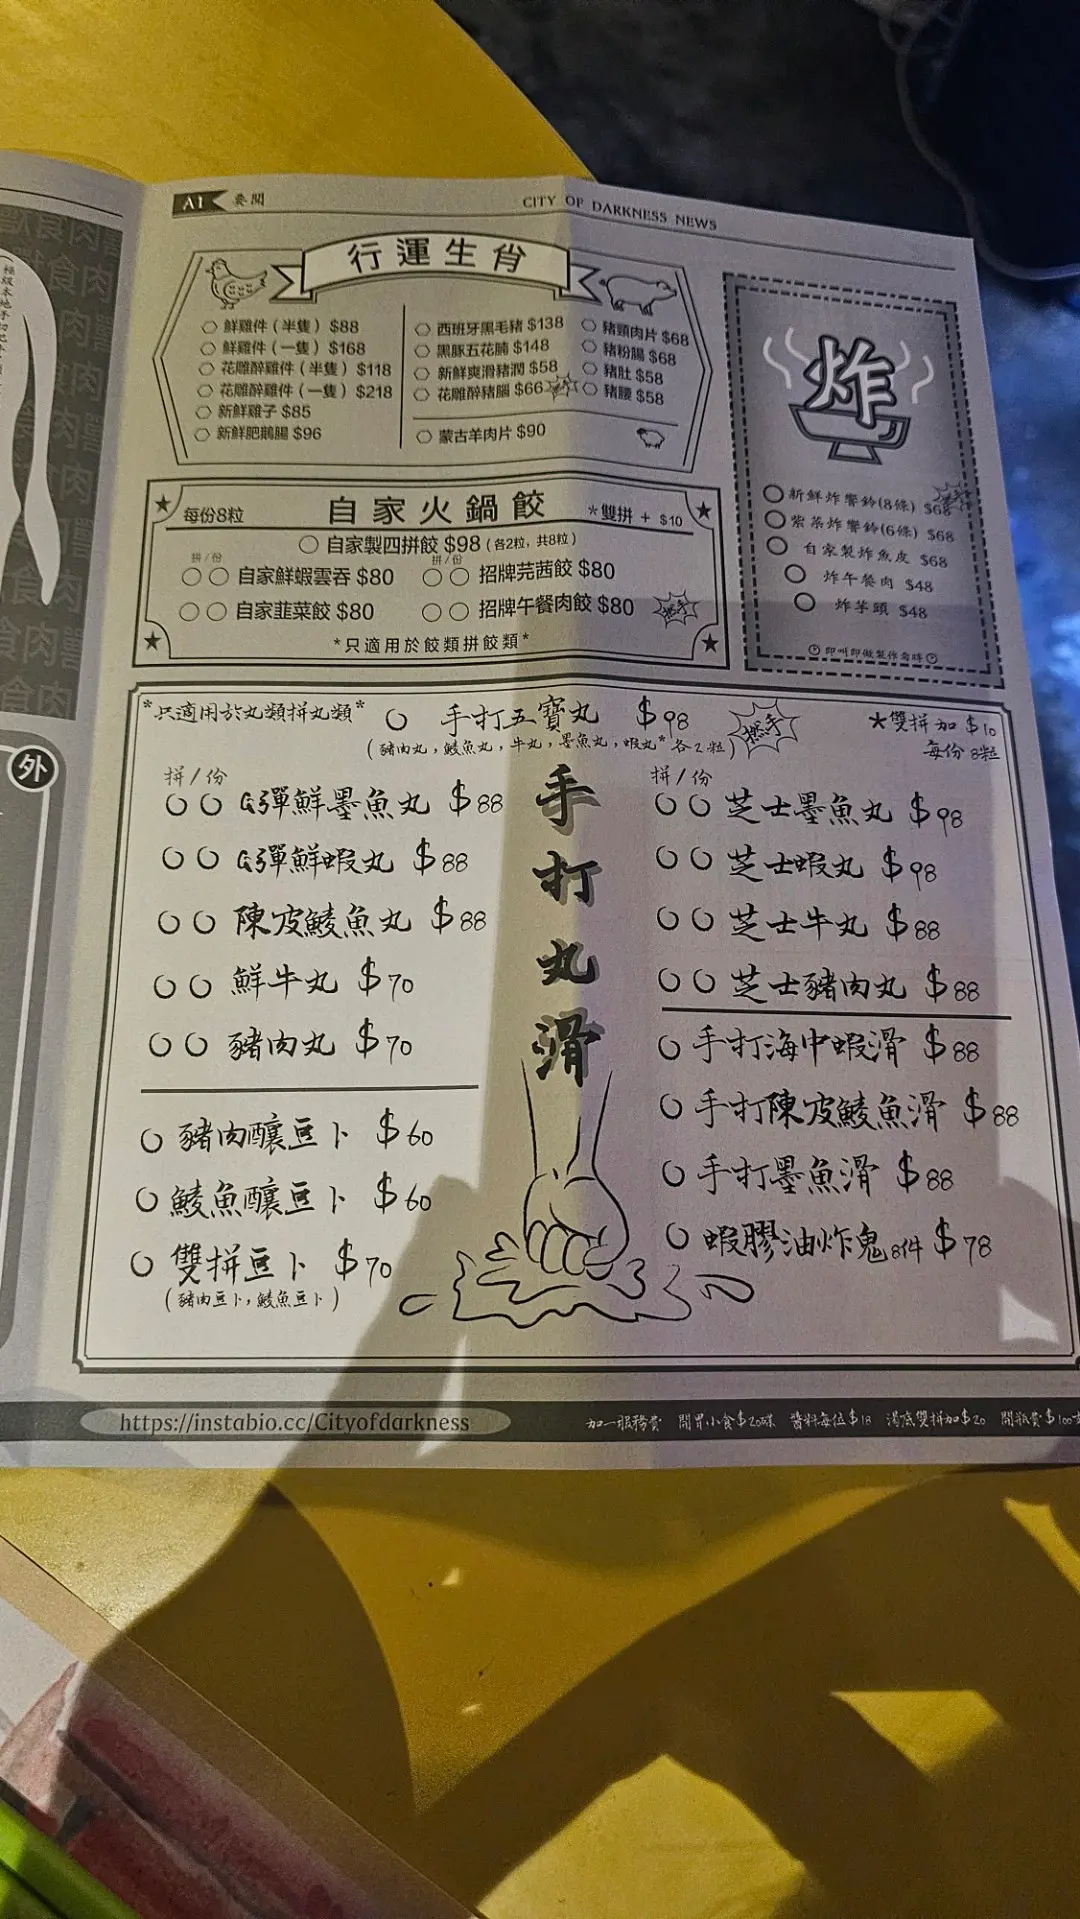 A1 要聞
CITY OF DARKNESS NEWS
行運生肖
鮮雞件(半隻) $88
鮮雞件(一隻) $168
花雕醉雞件(半隻) $118
花雕醉雞件(一隻) $218
新鮮雞子 $85
新鮮肥鵝腸 $96
西班牙黑毛豬 $138
黑豚五花腩 $148
新鮮爽滑豬潤 $58
花雕醉豬腦 $66
蒙古羊肉片 $90
豬頸肉片 $68
豬粉腸 $68
豬肚 $58
豬腰 $58
炸
新鮮炸響鈴(8條) $68
紫菜炸響鈴(6條) $68
自家製炸魚皮 $68
炸午餐肉 $48
炸芋頭 $48
即叫即做製作需時
每份8粒
自家火鍋餃
*雙拼 + $10
自家製四拼餃 $98 (各2粒, 共8粒)
拼/份
拼/份
自家鮮蝦雲吞 $80
招牌芫茜餃 $80
自家韮菜餃 $80
招牌午餐肉餃 $80
*只適用於餃類拼餃類*
*只適用於丸類拼丸類*
手打五寶丸 $98
(豬肉丸,鯪魚丸,牛丸,墨魚丸,蝦丸*各2粒)
*雙拼加$10
每份8粒
手打丸滑
拼/份
G彈鮮墨魚丸 $88
G彈鮮蝦丸 $88
陳皮鯪魚丸 $88
鮮牛丸 $70
豬肉丸 $70
豬肉釀豆卜 $60
鯪魚釀豆卜 $60
雙拼豆卜 $70
(豬肉豆卜,鯪魚豆卜)
拼/份
芝士墨魚丸 $98
芝士蝦丸 $98
芝士牛丸 $88
芝士豬肉丸 $88
手打海中蝦滑 $88
手打陳皮鯪魚滑 $88
手打墨魚滑 $88
蝦膠油炸鬼8件 $78
外
https://instabio.cc/Cityofdarkness
加一服務費 開胃小食$20碟 醬料每位$18 湯底雙拼加$20 開瓶費$100